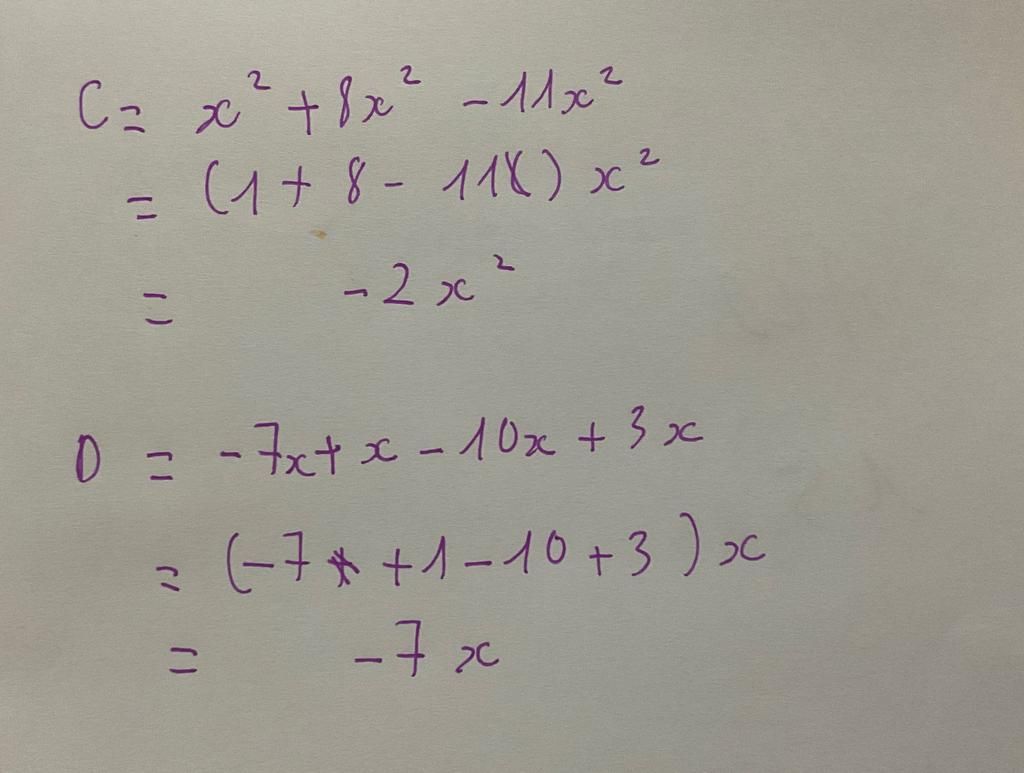 C = x² + 8x² - 11x²
= (1 + 8 - 11) x²
= - 2x²
D = - 7x + x - 10x + 3x
= (-7 + 1 - 10 + 3) x
= - 7x